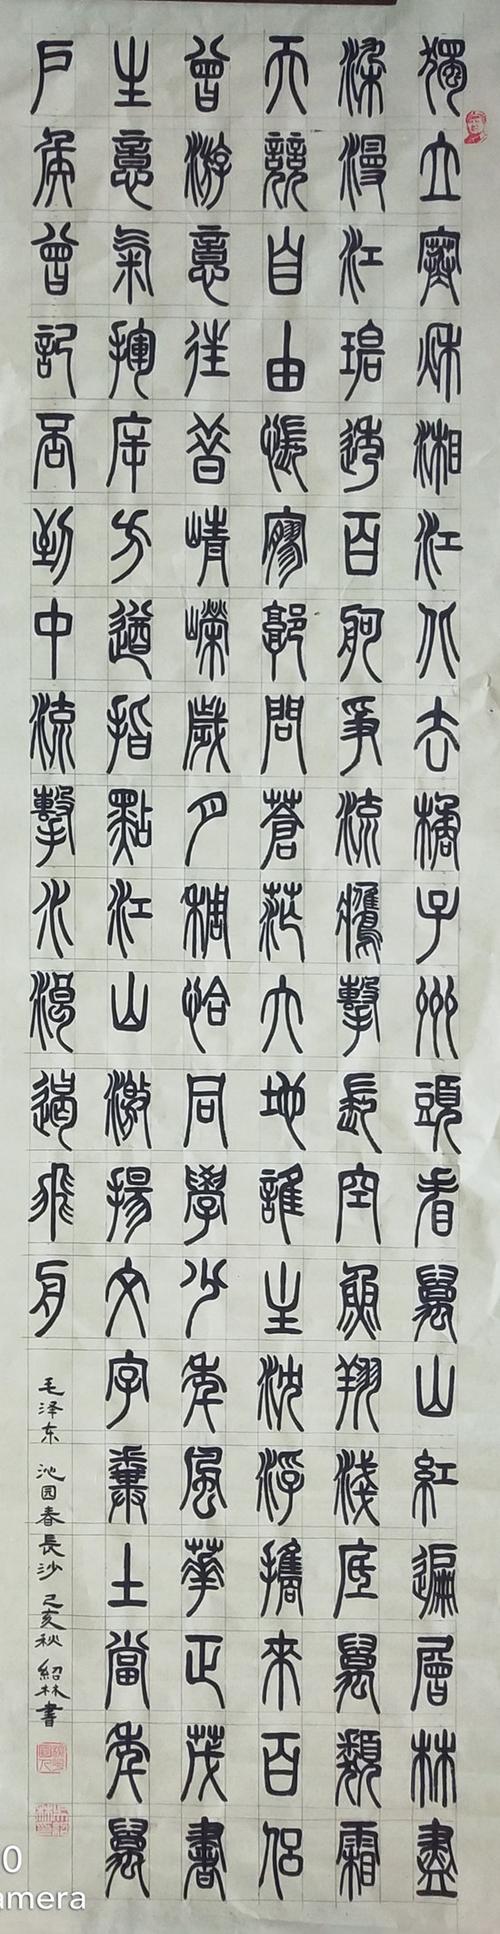 獨立寒秋湘江北去橘子州頭看萬山紅遍層林盡
染漫江碧透百舸爭流鷹擊長空魚翔淺底萬類霜
天競自由悵寥廓問蒼茫大地誰主沈浮攜來百侶
曾游憶往昔崢嶸歲月稠恰同學少年風華正茂書
生意氣揮斥方遒指點江山激揚文字糞土當年萬
戶侯曾記否到中流擊水浪遏飛舟
毛泽东 沁园春長沙 己亥秋 紹林書
0
amera